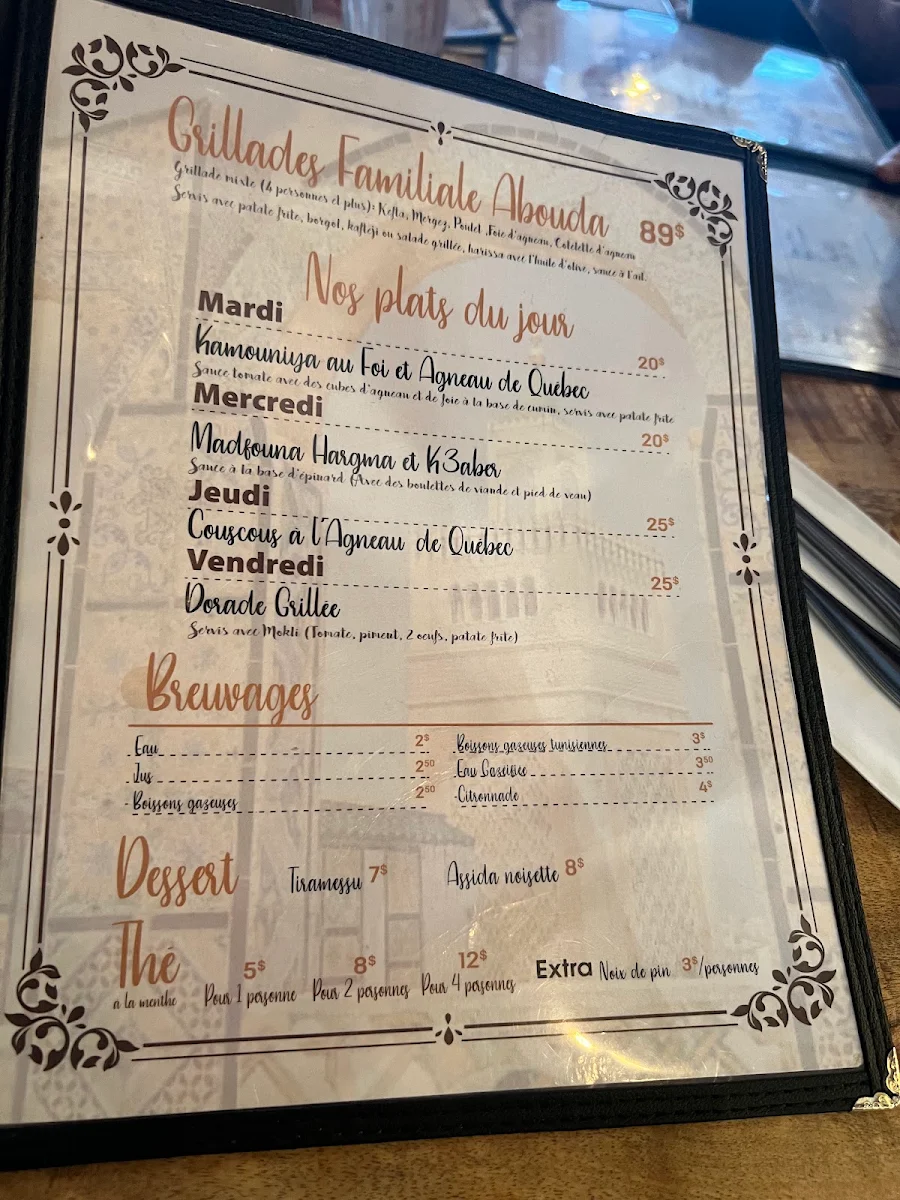 Grillades Familiale Abouda 89$
Grillade mixte (4 personnes et plus): Kefta, Mergez, Poulet ,Foie d'agneau, Cotelette d'agneau
Servis avec patate frite, borgol, kafteji ou salade grillée, harissa avec l'huile d'olive, sauce à l'ail.
Nos plats du jour
Mardi
20$
Kamouniya au Foi et Agneau de Québec
Sauce tomate avec des cubes d'agneau et de foie à la base de cumin, servis avec patate frite
Mercredi
20$
Madfouna Hargma et K3aber
Sauce à la base d'épinard (Avec des boulettes de viande et pied de veau)
Jeudi
25$
Couscous à l'Agneau de Québec
Vendredi
25$
Dorade Grillée
Servis avec Mokli (Tomate, piment, 2 oeufs, patate frite)
Breuvages
Eau 2$
Jus 250
Boissons gazeuses 250
Boissons gazeuses tunisiennes 3$
Eau Gazéifiée 350
Citronnade 4$
Dessert Tiramessu 7$ Assida noisette 8$
Thé
à la menthe
5$
Pour 1 personne
8$
Pour 2 personnes
12$
Pour 4 personnes
Extra Noix de pin 3$/personnes